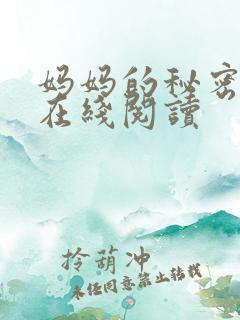 妈妈的秘密
在綫閱讀
拎葫冲
未经同意禁止转载